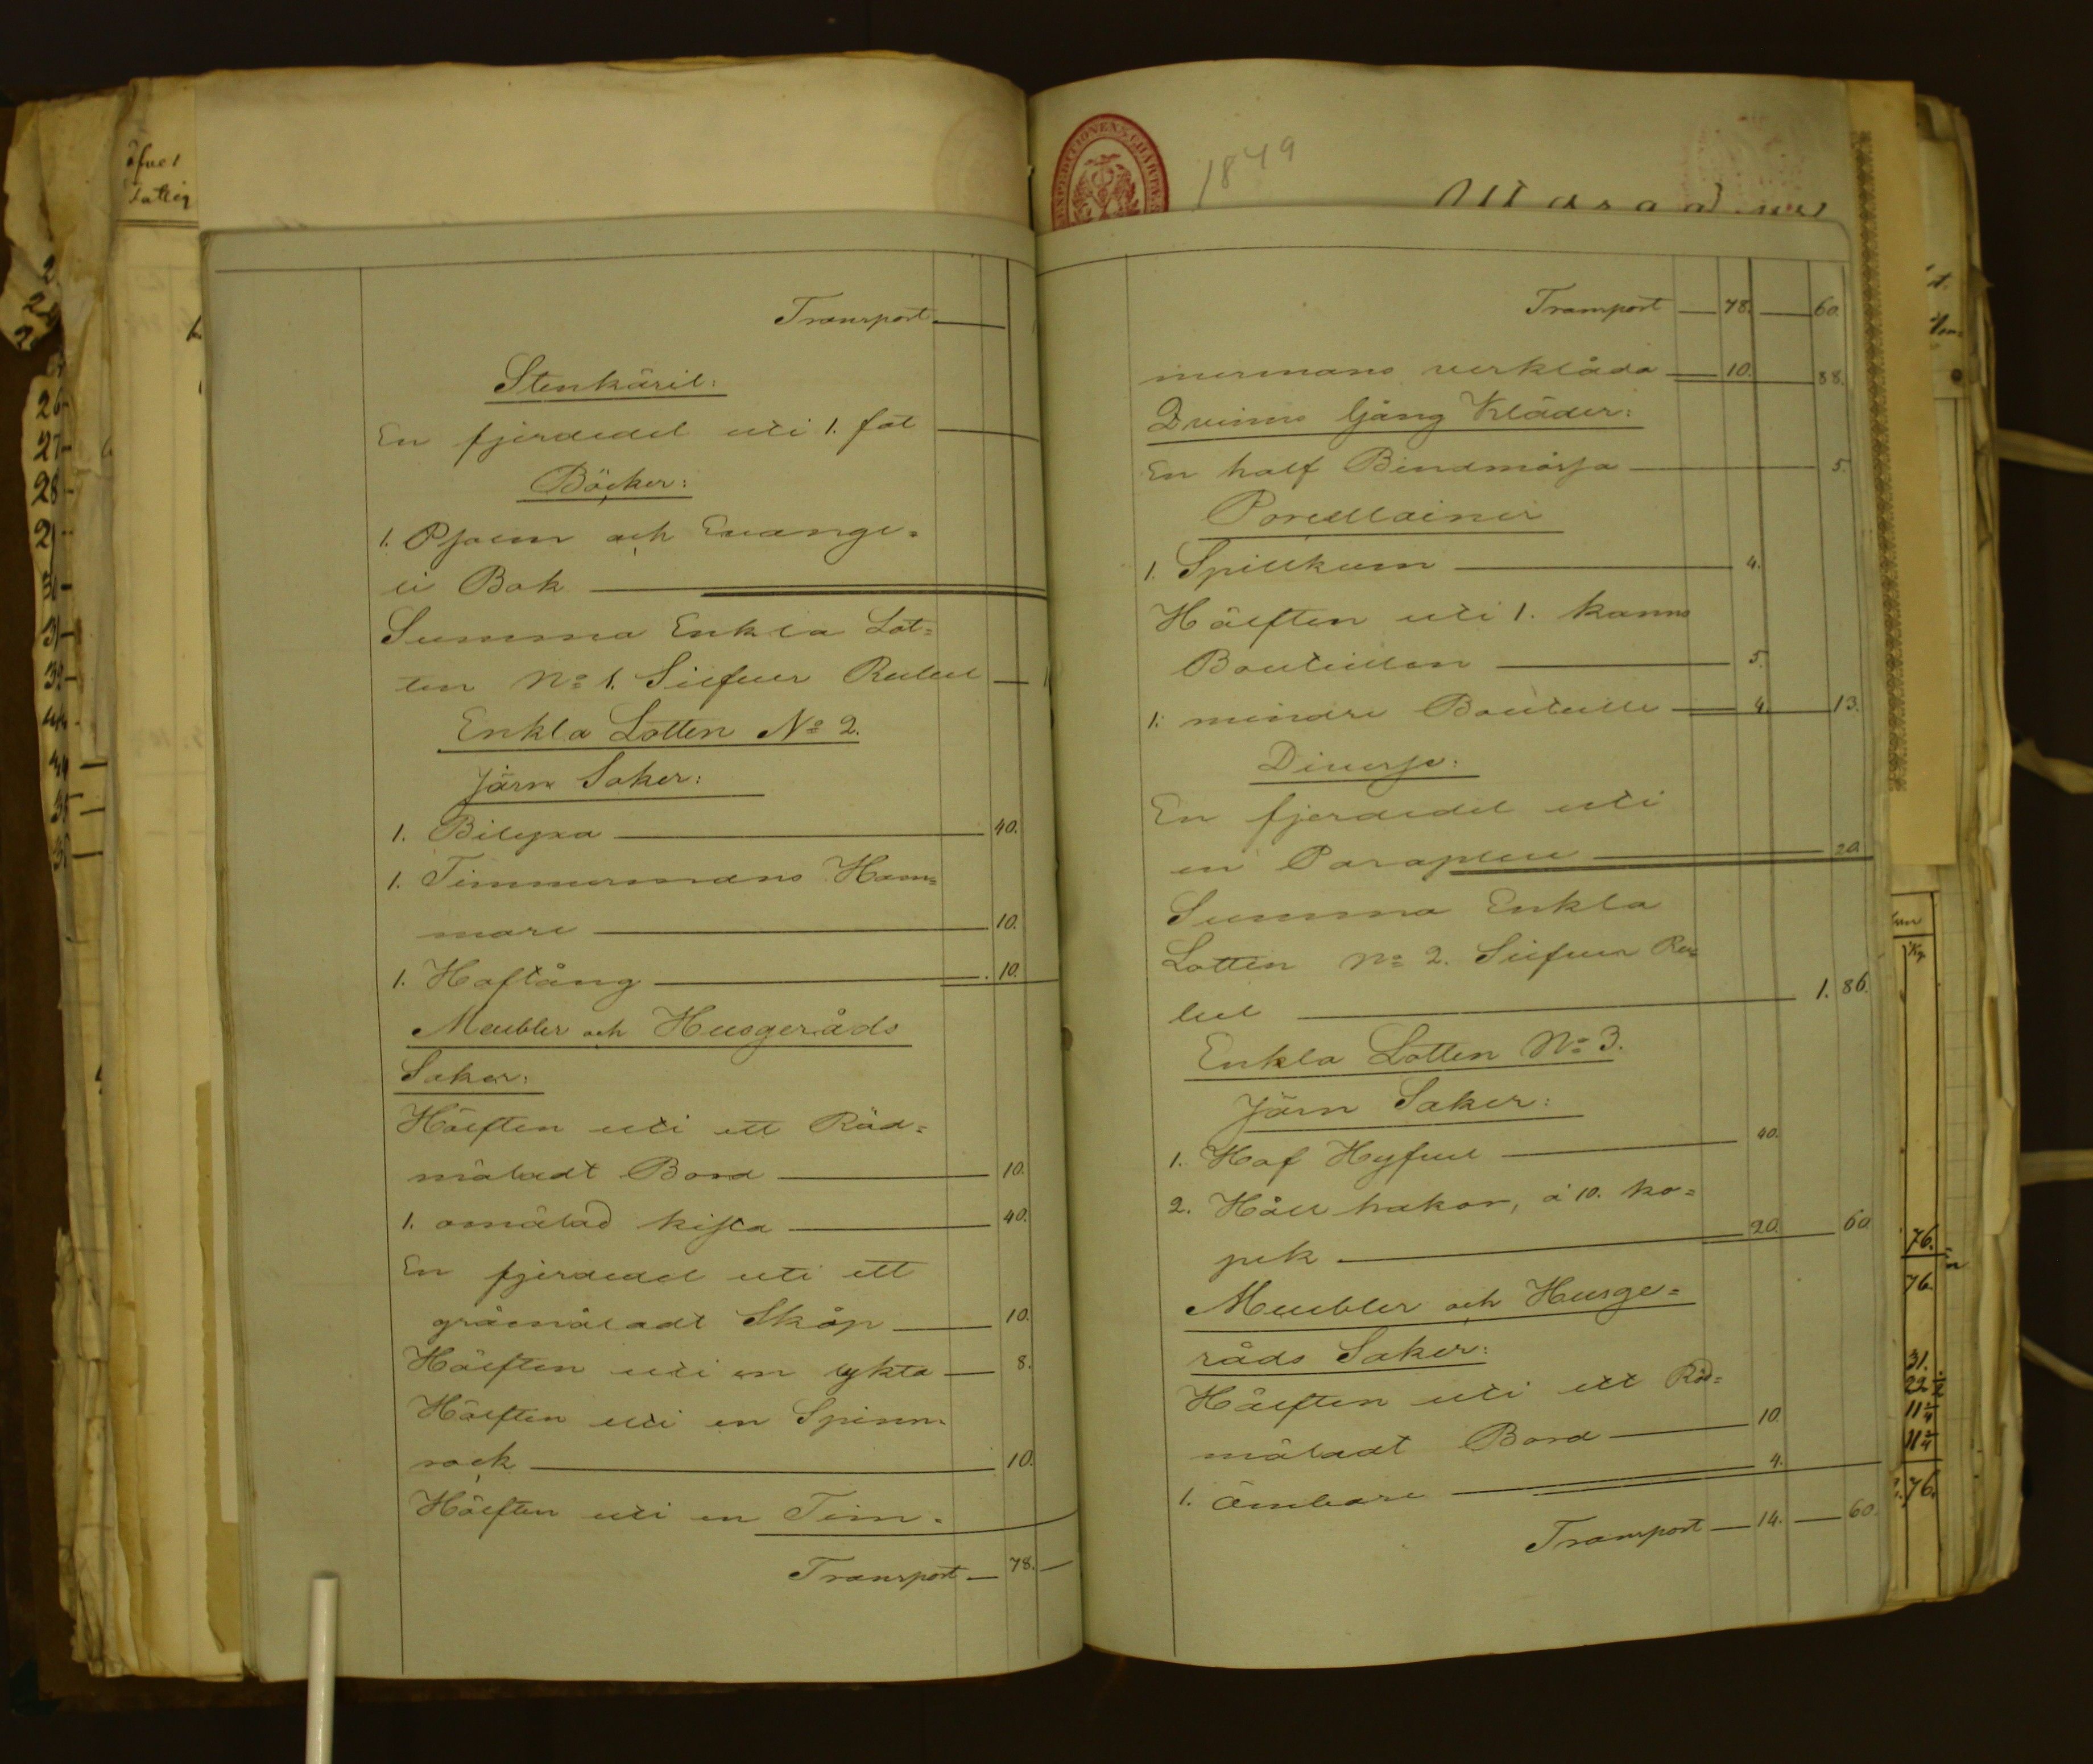 Transport
Stenkäril:
En fjerdedel uti 1. fat
Böcker:
1. Psalm och Evange=
li Bok
Summa Enkla Lot=
ten No 1. Silfver Rubel
Enkla Lotten No 2.
Järn Saker:
1. Bilyxa 40.
1. Timmermans Ham=
mare 10.
1. Hoftång 10.
Meubler och Husgeråds
Saker:
Hälften uti ett Röd=
måladt Bord 10.
1. omålad kista 40.
En fjerdedel uti ett
gråmåladt Skåp 10.
Hälften uti en lykta 8.
Hälften uti en Spinn=
rock 10.
Hälften uti en Tim=
Transport 78.
1849
Transport 78. 60.
mermans verklåda 10. 88.
Qvinns Gång Kläder:
En half Bindmössa 5.
Porcellainer
1. Spillkum 4.
Hälften uti 1. kanns
Bouteillen 5.
1. mindre Bouteille 4. 13.
Diverse:
En fjerdedel uti
en Paraplue 20.
Summa Enkla
Lotten No 2. Silfver Ru=
bel 1. 86.
Enkla Lotten No 3.
Järn Saker:
1. Hof Hyfvel 40.
2. Håll hakar, à 10. ko=
pek 20. 60.
Meubler och Husge=
råds Saker:
Hälften uti ett Röd=
måladt Bord 10.
1. Ämbare 4.
Transport 14. 60.
76.
76.
31.
76.